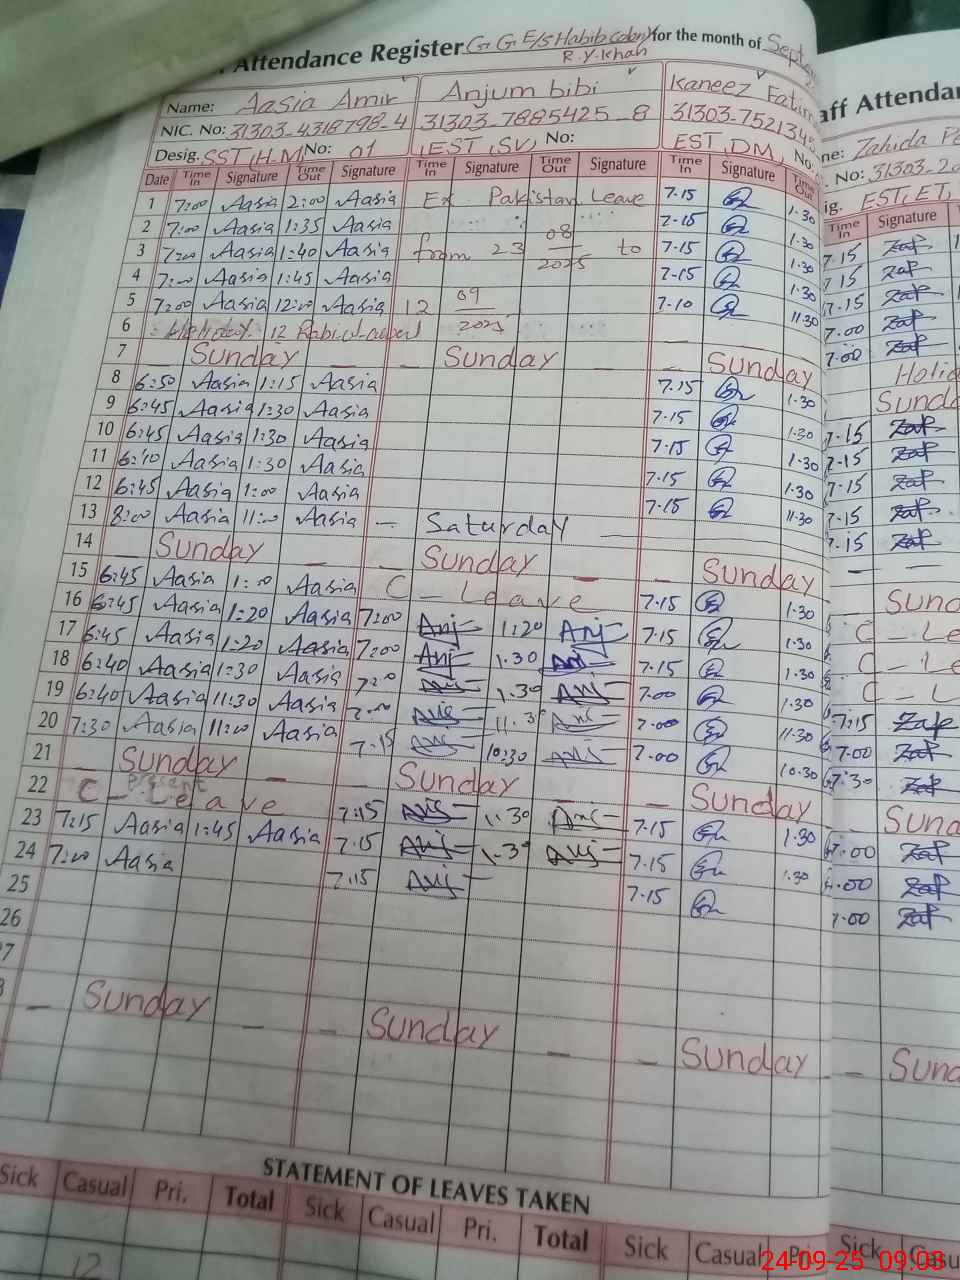 Attendance Register G.G.E/S Habib colony for the month of Septem
R.Y.Khan
Name: Aasia Amir Anjum bibi Kaneez Fatim
NIC. No: 31303-4318798-4 31303-7885425-8 31303-752134
Desig. SST, H.M No: 01 (EST, SV) No: EST, DM, No:
Date Time In Signature Time Out Signature Time In Signature Time Out Signature Time In Signature Time Out
1 7:00 Aasia 2:00 Aasia Ex Pakistan Leave 7.15 1.30
2 7:00 Aasia 1:35 Aasia 7.15 1.30
3 7:00 Aasia 1:40 Aasia from 23 08 2025 to 7.15 1.30
4 7:00 Aasia 1:45 Aasia 7.15 1.30
5 7:00 Aasia 12:00 Aasia 12 09 2025 7.10 11.30
6 12 Rabi-ul-
7 Sunday Sunday Sunday
8 6:50 Aasia 1:15 Aasia 7.15 1.30
9 6:45 Aasia 1:30 Aasia 7.15 1.30
10 6:45 Aasia 1:30 Aasia 7.15 1.30
11 6:40 Aasia 1:30 Aasia 7.15 1.30
12 6:45 Aasia 1:00 Aasia 7.15 11.30
13 8:00 Aasia 11:00 Aasia — Saturday
14 — Sunday — — Sunday — — Sunday
15 6:45 Aasia 1:00 Aasia C - Leave 7.15 1.30
16 6:45 Aasia 1:20 Aasia 7:00 Anj 1:20 Anj 7.15 1.30
17 6:45 Aasia 1:20 Aasia 7:00 Anj 1.30 Anj 7.15 1.30
18 6:40 Aasia 1:30 Aasia 7:00 Anj 1.30 Anj 7.00 1.30
19 6:40 Aasia 11:30 Aasia 7:00 Anj 11.30 Anj 7.00 11.30
20 7:30 Aasia 11:00 Aasia 7.15 Anj 10:30 Anj 7.00 10.30
21 — Sunday — — Sunday — — Sunday
22 C - Leave present 7:15 Anj 1.30 Anj 7.15 1.30
23 7:15 Aasia 1:45 Aasia 7.15 Anj 1.30 Anj 7.15 1.30
24 7:00 Aasia 7.15 Anj 7.15
25
26
27
— Sunday — — Sunday — — Sunday
STATEMENT OF LEAVES TAKEN
Sick Casual Pri. Total Sick Casual Pri. Total Sick Casual Pri
12
aff Attendan
ne: Zahida
No: 31303-20
ig. EST, ET,
Time In Signature
7.15 Zap
7.15 Zap
7.15 Zap
7.00 Zap
7.00 Zap
Holid
Sund
7.15 Zap
7.15 Zap
7.15 Zap
7.15 Zap
7.15 Zap
— —
— Sund
C - Le
C - Le
C - L
7:15 Zap
7.00 Zap
7.30 Zap
Sund
7.00 Zap
7.00 Zap
7.00 Zap
— Sund
Sick Casu
24-09-25 09:03